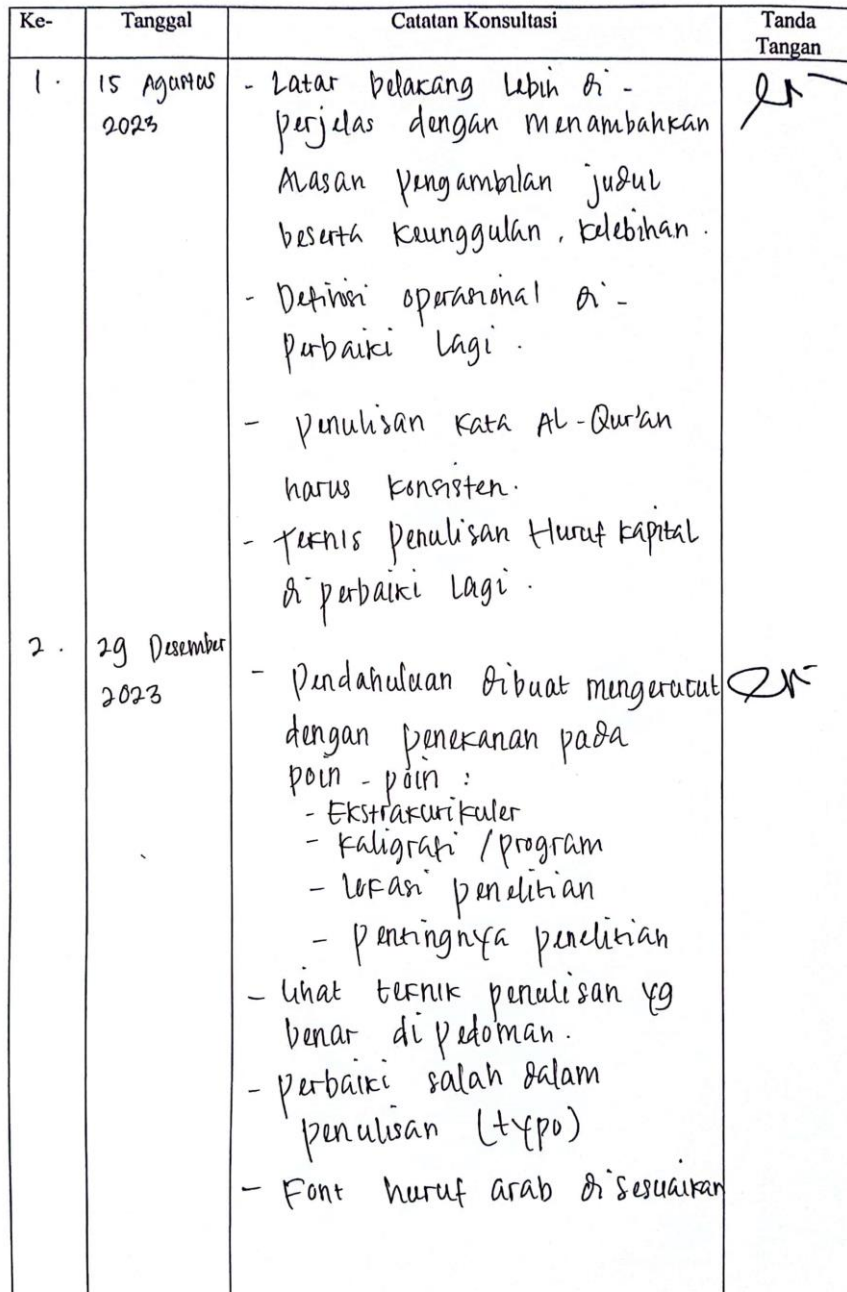 Ke- Tanggal Catatan Konsultasi Tanda
Tangan
1. 15 Agustus - Latar belakang lebih di-
2023 perjelas dengan menambahkan
Alasan pengambilan judul
beserta keunggulan, kelebihan.
- Definisi operasional di-
perbaiki lagi.
- penulisan kata Al-Qur'an
harus konsisten.
- Teknis penulisan Huruf kapital
di perbaiki lagi.
2. 29 Desember - Pendahuluan dibuat mengerucut
2023 dengan penekanan pada
poin-poin:
- Ekstrakurikuler
- kaligrafi / program
- lokasi penelitian
- pentingnya penelitian
- lihat teknik penulisan yg
benar di pedoman.
- perbaiki salah dalam
penulisan (typo)
- Font huruf arab di sesuaikan